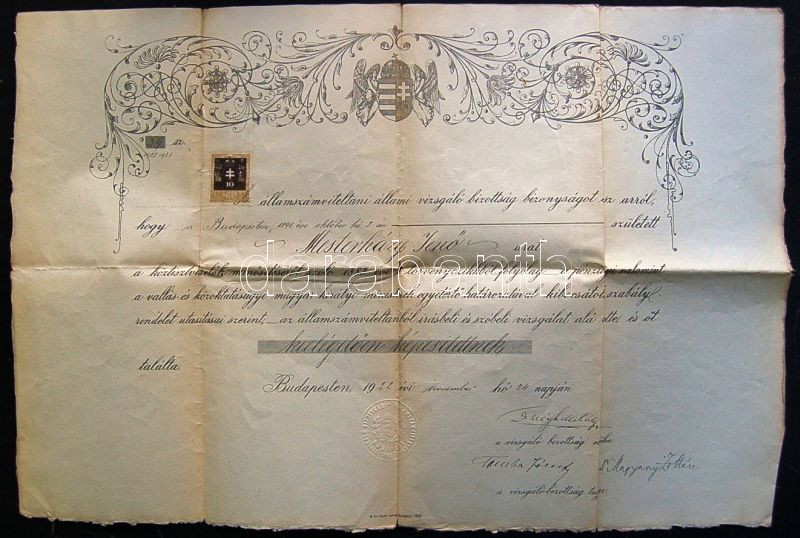 sz.
10
Az államszámviteltani állami vizsgáló bizottság bizonyságot tesz arról,
hogy a Budapesten, 1891 évi október hó 2 án született
Mesterházy Jenő urat
a köztisztviselők minősítéséről szóló törvényczikkből folyólag a pénzügyi valamint
a vallás és közoktatásügyi magyar királyi miniszterek együttes határozatával kibocsátott szabály
rendelet utasításai szerint, az államszámviteltanból írásbeli és szóbeli vizsgálat alá vette és őt
kielégítően képesítettnek
találta.
Budapesten, 1922 évi november hó 24 napján
a vizsgáló bizottság elnöke.
József Dr. Magyary Zoltán
a vizsgáló bizottság tagja.
darabanth